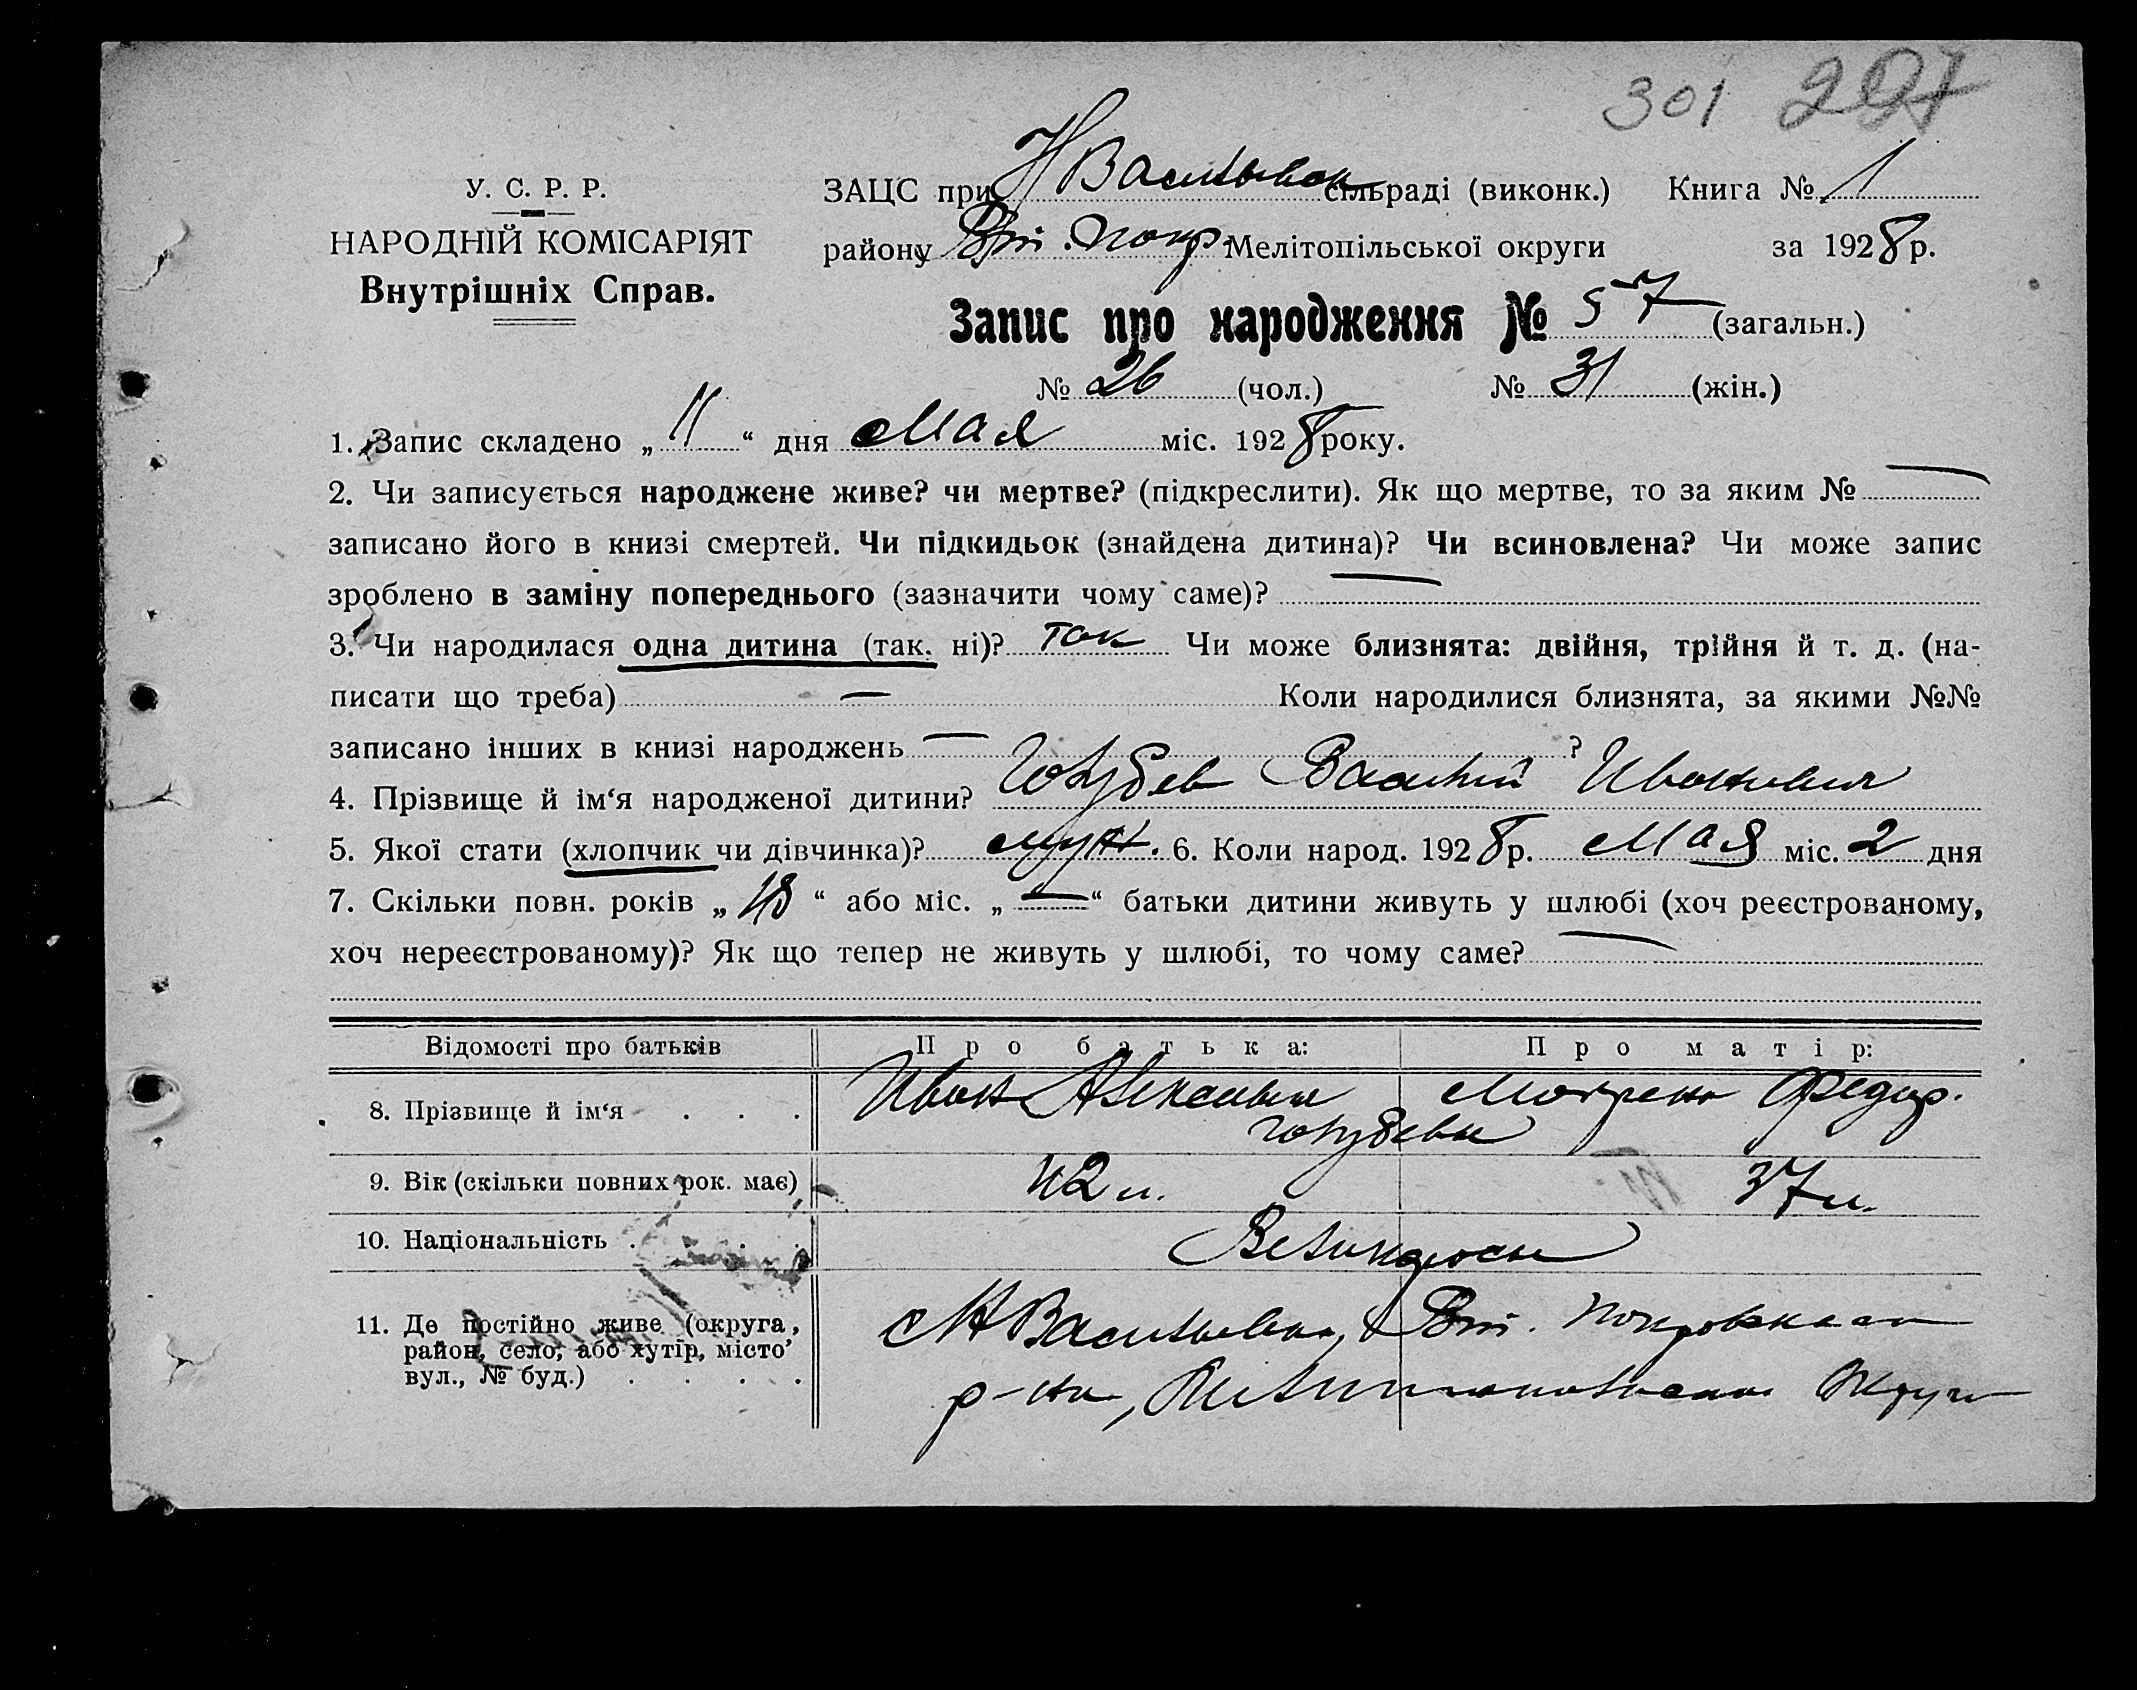 301 297
У. С. Р. Р.
НАРОДНІЙ КОМІСАРІЯТ
Внутрішніх Справ.
ЗАЦС при Н Васильевск сільраді (виконк.) Книга № 1
району Вт. Покр. Мелітопільської округи за 1928 р.
Запис про народження № 57 (загальн.)
№ 26 (чол.) № 31 (жін.)
1. Запис складено „ 11 “ дня Мая міс. 1928 року.
2. Чи записується народжене живе? чи мертве? (підкреслити). Як що мертве, то за яким № —
записано його в книзі смертей. Чи підкидьок (знайдена дитина)? Чи всиновлена? Чи може запис
зроблено в заміну попереднього (зазначити чому саме)? —
3. Чи народилася одна дитина (так. ні)? так Чи може близнята: двійня, трійня й т. д. (на-
писати що треба) — Коли народилися близнята, за якими №№
записано інших в книзі народжень — ?
4. Прізвище й ім‘я народженої дитини? Голубев Василий Иванович
5. Якої стати (хлопчик чи дівчинка)? муж. 6. Коли народ. 1928 р. Мая міс. 2 дня
7. Скільки повн. років „ 18 “ або міс. „ — “ батьки дитини живуть у шлюбі (хоч реєстрованому,
хоч нереєстрованому)? Як що тепер не живуть у шлюбі, то чому саме? —
Відомості про батьків Про батька: Про матір:
8. Прізвище й ім‘я . . . Иван Алексеевич Мотрена Федор.
Голубевы
9. Вік (скільки повних рок. має) 42 л. 37 л.
10. Національність . . . . Великороссы
11. Де постійно живе (округа,
район, село, або хутір, місто
вул., № буд.) . . . .
с Н Васильевка, Вт. Покровского
р-на, Мелитопольской Округи